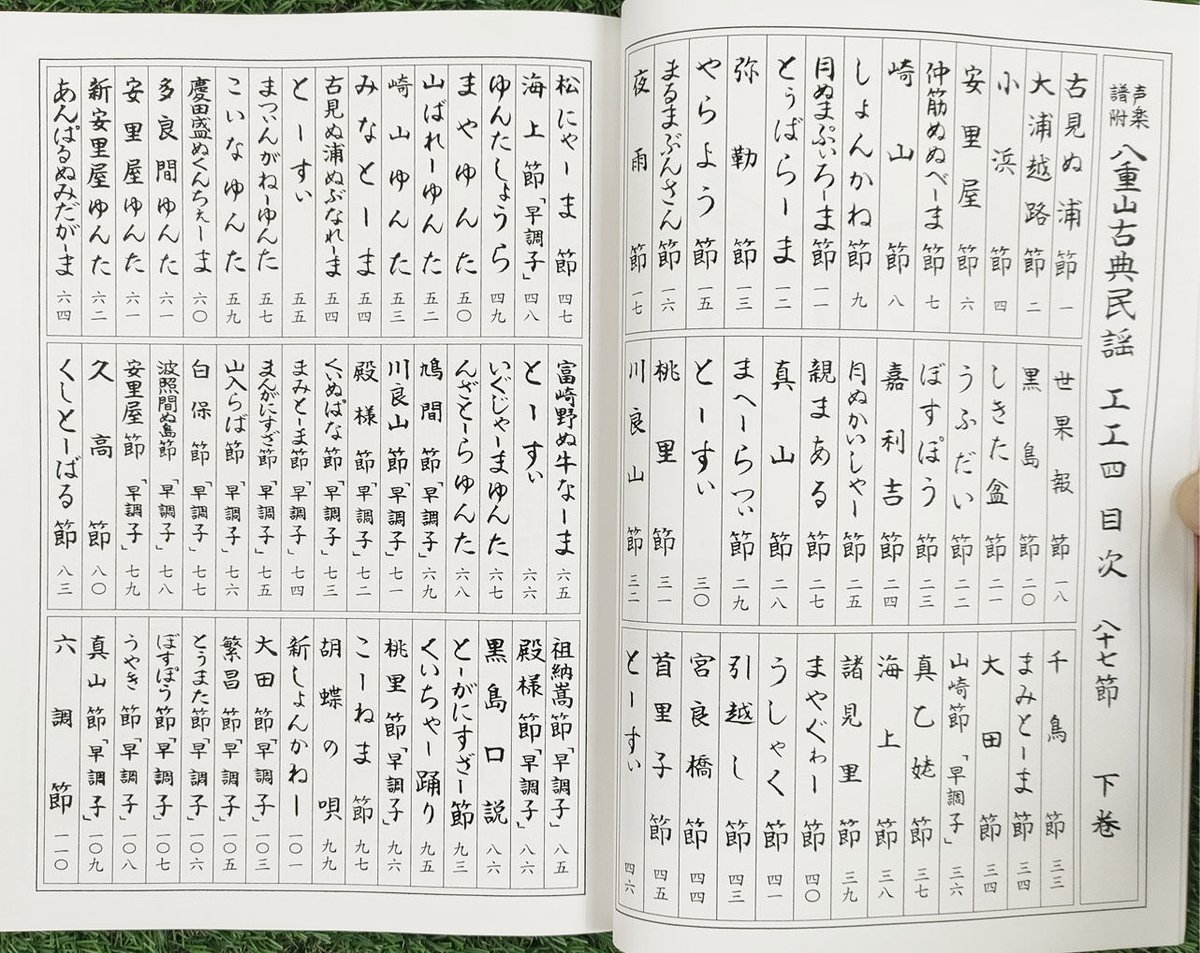 声楽譜附 八重山古典民謡 工工四 目次 八十七節 下巻
古見ぬ浦節 一
大浦越路節 二
小浜節 四
安里屋節 六
仲筋ぬぬべーま節 七
崎山節 八
しょんかね節 九
月ぬまぷぃろーま節 一一
とぅばらーま 一二
弥勒節 一三
やらよう節 一五
まるまぶんさん節 一六
夜雨節 一七
世果報節 一八
黒島節 二〇
しきた盆節 二一
うふだい節 二二
ぼすぽう節 二三
嘉利吉節 二四
月ぬかいしゃー節 二五
親まある節 二七
真山節 二八
まへーらつぃ節 二九
とーすぃ 三〇
桃里節 三一
川良山節 三二
千鳥節 三三
まみとーま節 三四
大田節 三四
山崎節「早調子」 三六
真乙姥節 三七
海上節 三八
諸見里節 三九
まやぐゎー節 四〇
うしゃく節 四一
引越し節 四三
宮良橋節 四四
首里子節 四五
とーすぃ 四六
松にゃーま節 四七
海上節「早調子」 四八
ゆんたしょうら 四九
まやゆんた 五〇
山ばれーゆんた 五二
崎山ゆんた 五三
みなとーま 五四
古見ぬ浦ぬぶなれーま 五四
とーすぃ 五五
まついんがねーゆんた 五七
こいなゆんた 五九
慶田盛ぬくんちぇーま 六〇
多良間ゆんた 六一
安里屋ゆんた 六一
新安里屋ゆんた 六二
あんぱるぬみだがーま 六四
富崎野ぬ牛なーま 六五
とーすぃ 六六
いぐじゃーまゆんた 六七
んざとーらゆんた 六八
鳩間節「早調子」 六九
川良山節「早調子」 七一
殿様節「早調子」 七二
くいぬぱな節「早調子」 七三
まみとーま節「早調子」 七四
まんがにすざ節「早調子」 七五
山入らば節「早調子」 七六
白保節「早調子」 七七
波照間ぬ島節「早調子」 七八
安里屋節「早調子」 七九
久高節 八〇
くしとーばる節 八三
祖納嵩節「早調子」 八五
殿様節「早調子」 八六
黒島口説 八六
とーがにすざー節 九三
くいちゃー踊り 九五
桃里節「早調子」 九六
こーねま節 九七
胡蝶の唄 九九
新しょんかねー 一〇一
大田節「早調子」 一〇三
繁昌節「早調子」 一〇五
とぅまた節「早調子」 一〇六
ぼすぽう節「早調子」 一〇七
うやき節「早調子」 一〇八
真山節「早調子」 一〇九
六調節 一一〇